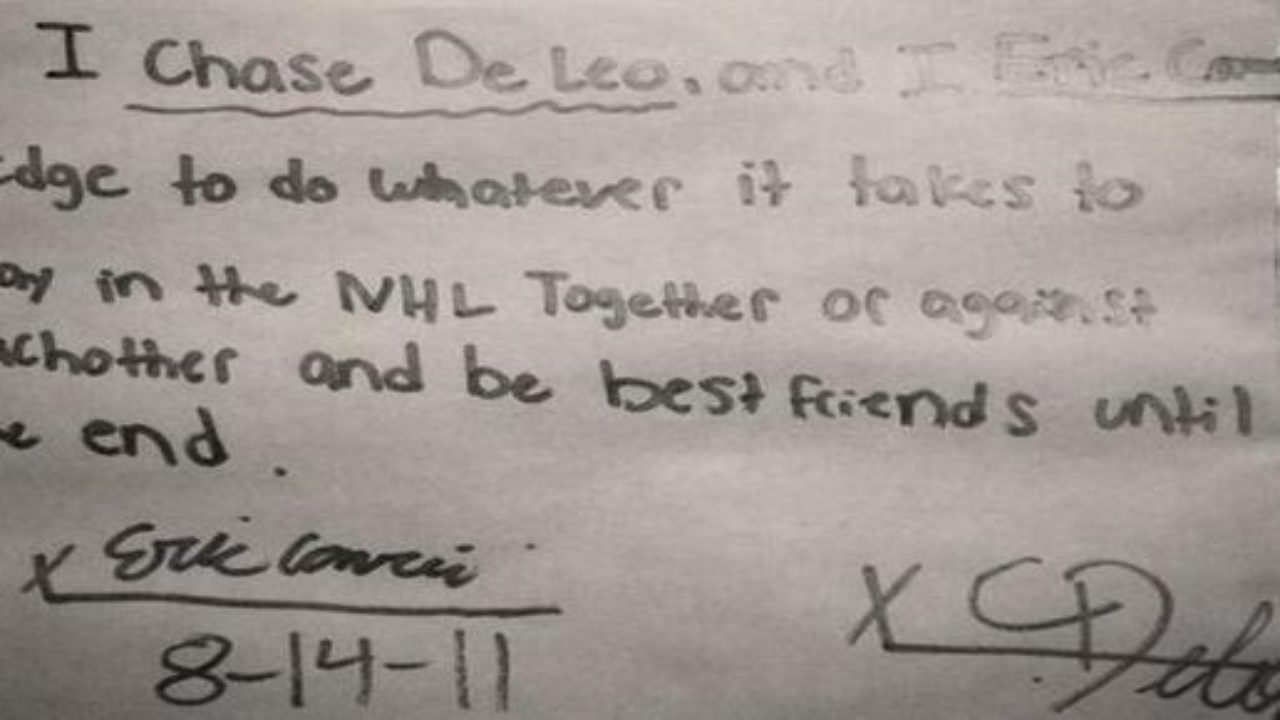 I Chase De Leo, and I Eric Co
edge to do whatever it takes to
ay in the NHL Together or against
achother and be best friends until
e end.
x Eric Comrie X CDeLeo
8-14-11